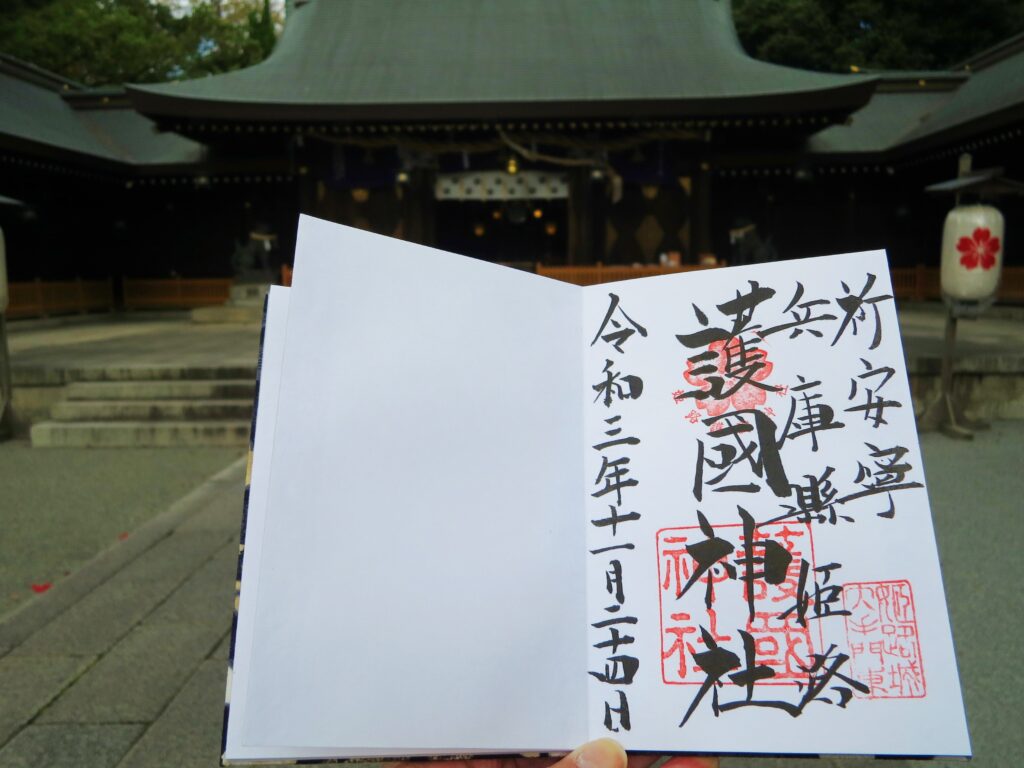 祈安寧
兵庫縣姫路
護國神社
令和三年十一月二十四日
護國
神社
姫路城
大手門東